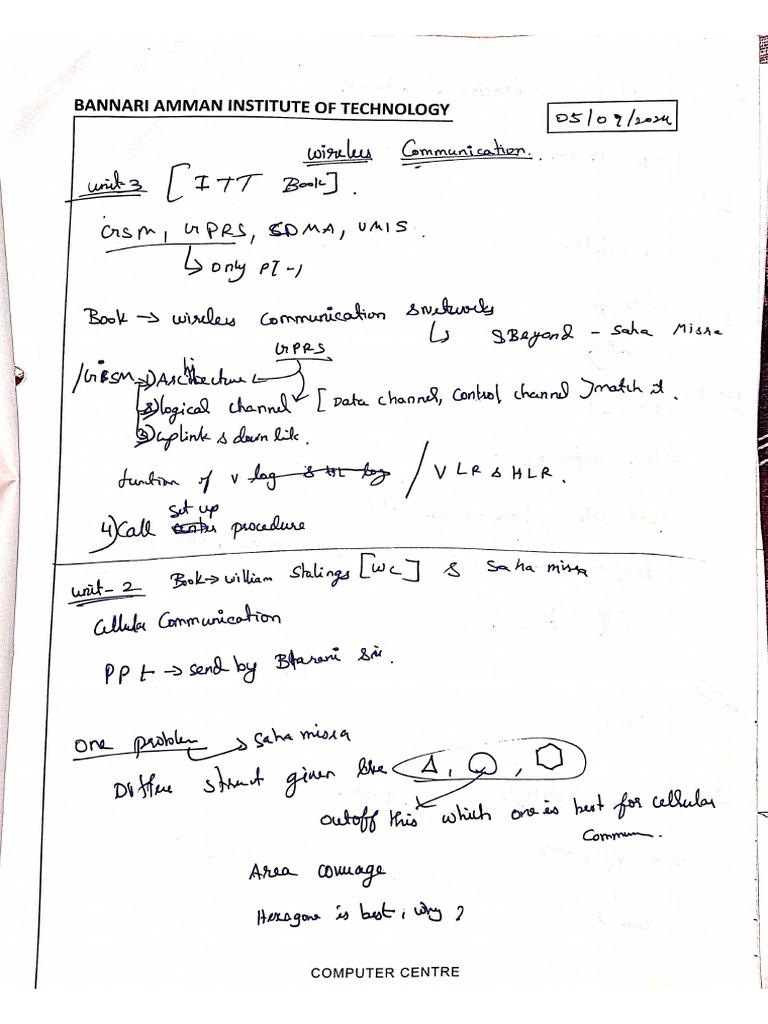 BANNARI AMMAN INSTITUTE OF TECHNOLOGY
05/09/2024
Wireless Communication.
Unit-3 [ITT Book].
GSM, GPRS, SDMA, UMIS.
↳ only PT-1
Book → wireless communication & Networks
↳ & Beyond - Saha Misra
GPRS
GSM → 1) Architecture
2) logical channel [Data channel, Control channel] match it.
3) uplink & down lik.
function of V log & HL log / VLR & HLR.
set up
4) Call procedure
Unit-2 Book → william Stalings [WC] & Saha misra
Cellular Communication
PPt → send by Bharani Sir.
One problem → Saha misra
Differe struct given like △, ○, ⬡
outoff this which one is best for cellular
Commun.
Area couuage
Hexagone is best, why?
COMPUTER CENTRE